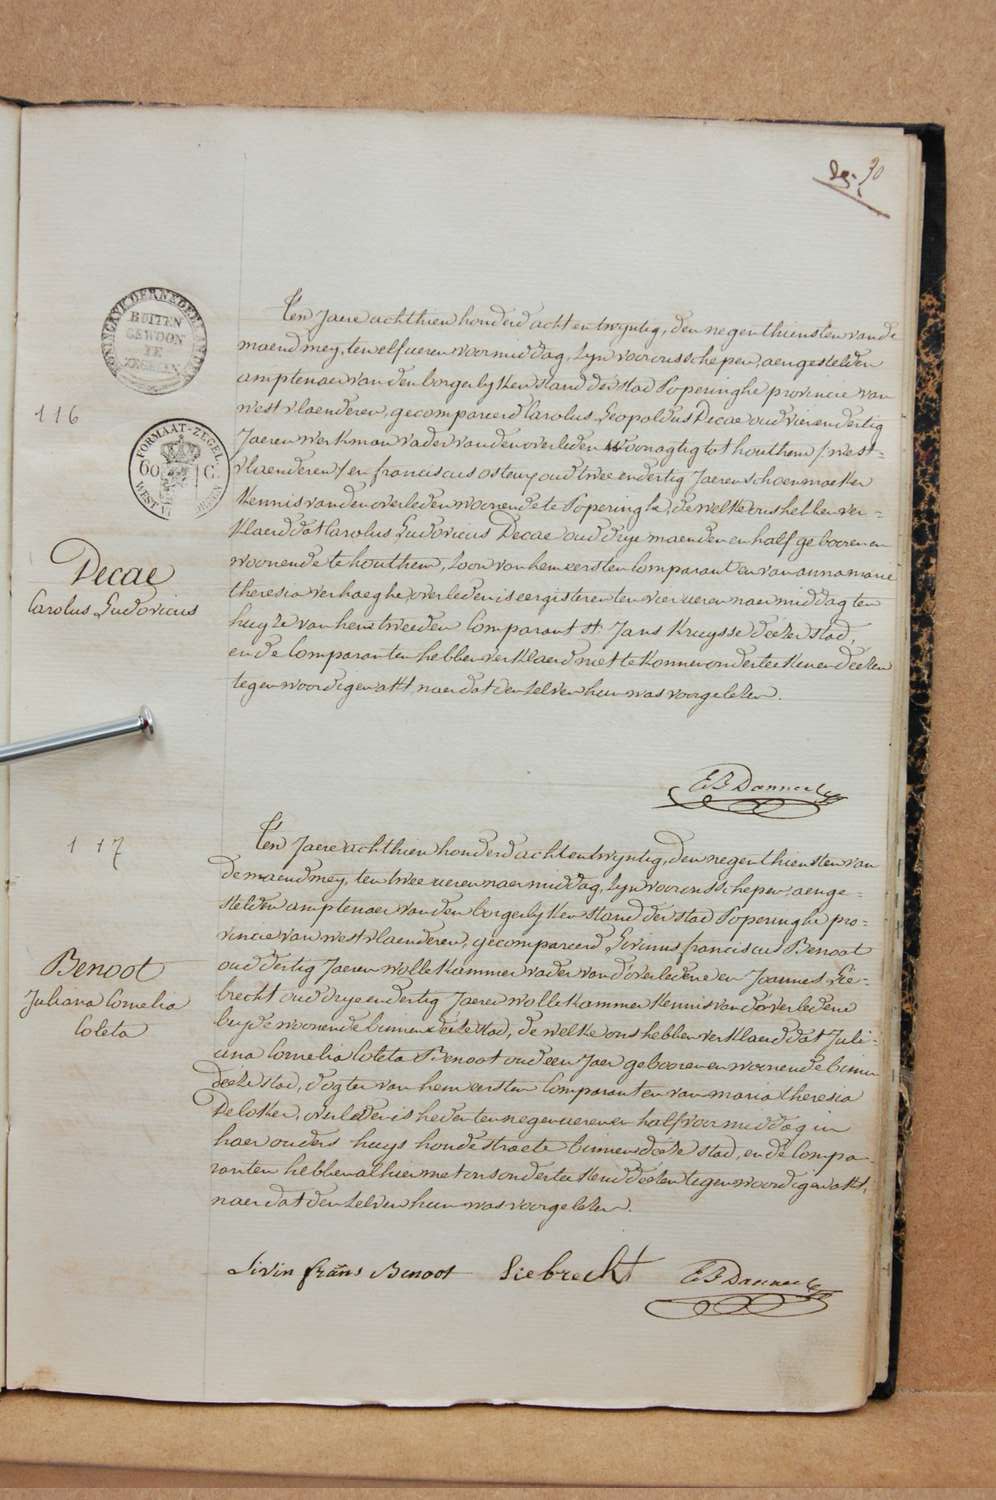 30
KONINGRYK DER NEDERLANDEN
BUITEN
GEWOON
TE
ZEGELEN
Ten Jaere achthien honderd acht en twyntig, den negenthiensten van de
maend mey, ten elf ueren voormiddag, zyn voor ons schepen, aengestelden
116
amptenaer van den borgerlyken stand der stad Poperinghe provincie van
westvlaenderen, gecompareerd Carolus Leopoldus Decae oud vier en dertig
FORMAAT-ZEGEL
60 C.
WEST-VL
Jaeren werkman vader van den overleden woonagtig tot houthem / west-
vlaenderen / en franciscus osteux oud twee en dertig Jaeren schoenmaeker
kennis van den overleden woonende te Poperinghe, de welke ons hebben ver-
klaerd dat Carolus Ludovicus Decae oud drye maenden en half geboren en
Decae
woonende te houthem, zoon van hem eersten Comparant en van anna marie
Carolus Ludovicus
theresia verhaeghe, overleden is eergisteren ten vier ueren naermiddag ten
huyze van hem tweeden Comparant St. Jans Kruysse deezer stad,
en de Comparanten hebben verklaerd niet te konnen onderteekenen deezen
tegenwoordigen akt naer dat den zelven hun was voorgelezen.
117
Ten Jaere achthien honderd acht en twyntig, den negenthiensten van
de maend mey, ten twee ueren naermiddag, zyn voor ons schepen, aenge-
stelden amptenaer van den borgerlyken stand der stad Poperinghe pro-
vincie van westvlaenderen, gecompareerd Livinus franciscus Benoot
Benoot
oud dertig Jaeren wollekammer vader van d'overledene en Joannes Lie-
Juliana Cornelia
brecht oud drye en dertig Jaeren wollekammer kennis van d'overledene
Coleta
beyde woonende binnen deeze stad, de welke ons hebben verklaerd dat Juli-
ana Cornelia Coleta Benoot oud een Jaer geboren en woonende binnen
deeze stad, dogter van hem eersten Comparant en van maria theresia
Deloker, overleden is heden ten negen ueren en half voormiddag in
haer ouders huys hondestraete binnen deeze stad, en de Compa-
ranten hebben alhier met ons onderteekend deezen tegenwoordigen akt,
naer dat den zelven hun was voorgelezen.
Livin frans Benoot Liebrecht